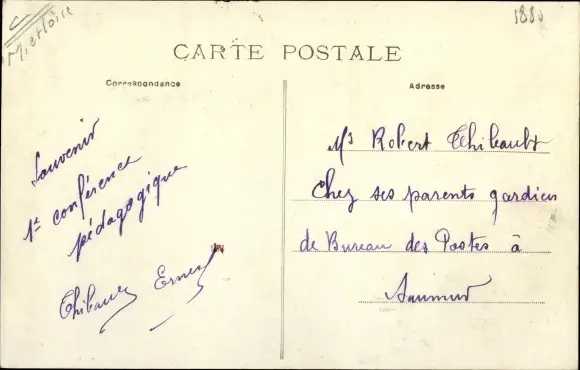 1880
CARTE POSTALE
Correspondance
Adresse
Souvenir
1re conférence
pédagogique
Thibault Ernest
Mr Robert Thibault
Chez ses parents gardien
de Bureau des Postes à
Saumur